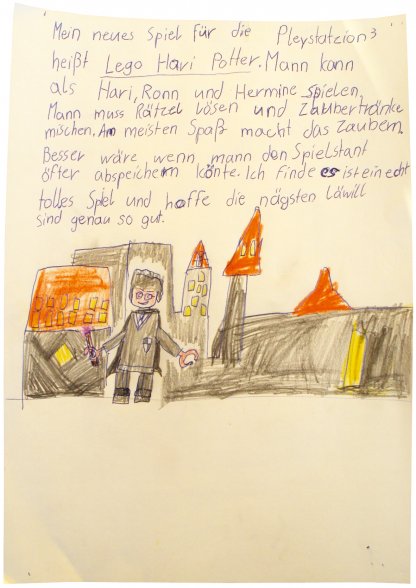 Mein neues Spiel für die Pleystatzion 3
heißt Lego Hari Potter. Mann kann
als Hari, Ronn und Hermine spielen.
Mann muss Rätzel lösen und Zaubertränke
mischen. Am meisten Spaß macht das Zaubern.
Besser wäre wenn mann den Spielstant
öfter abspeichern könte. Ich finde es ist ein echt
tolles Spiel und hoffe die nägsten Läwill
sind genau so gut.